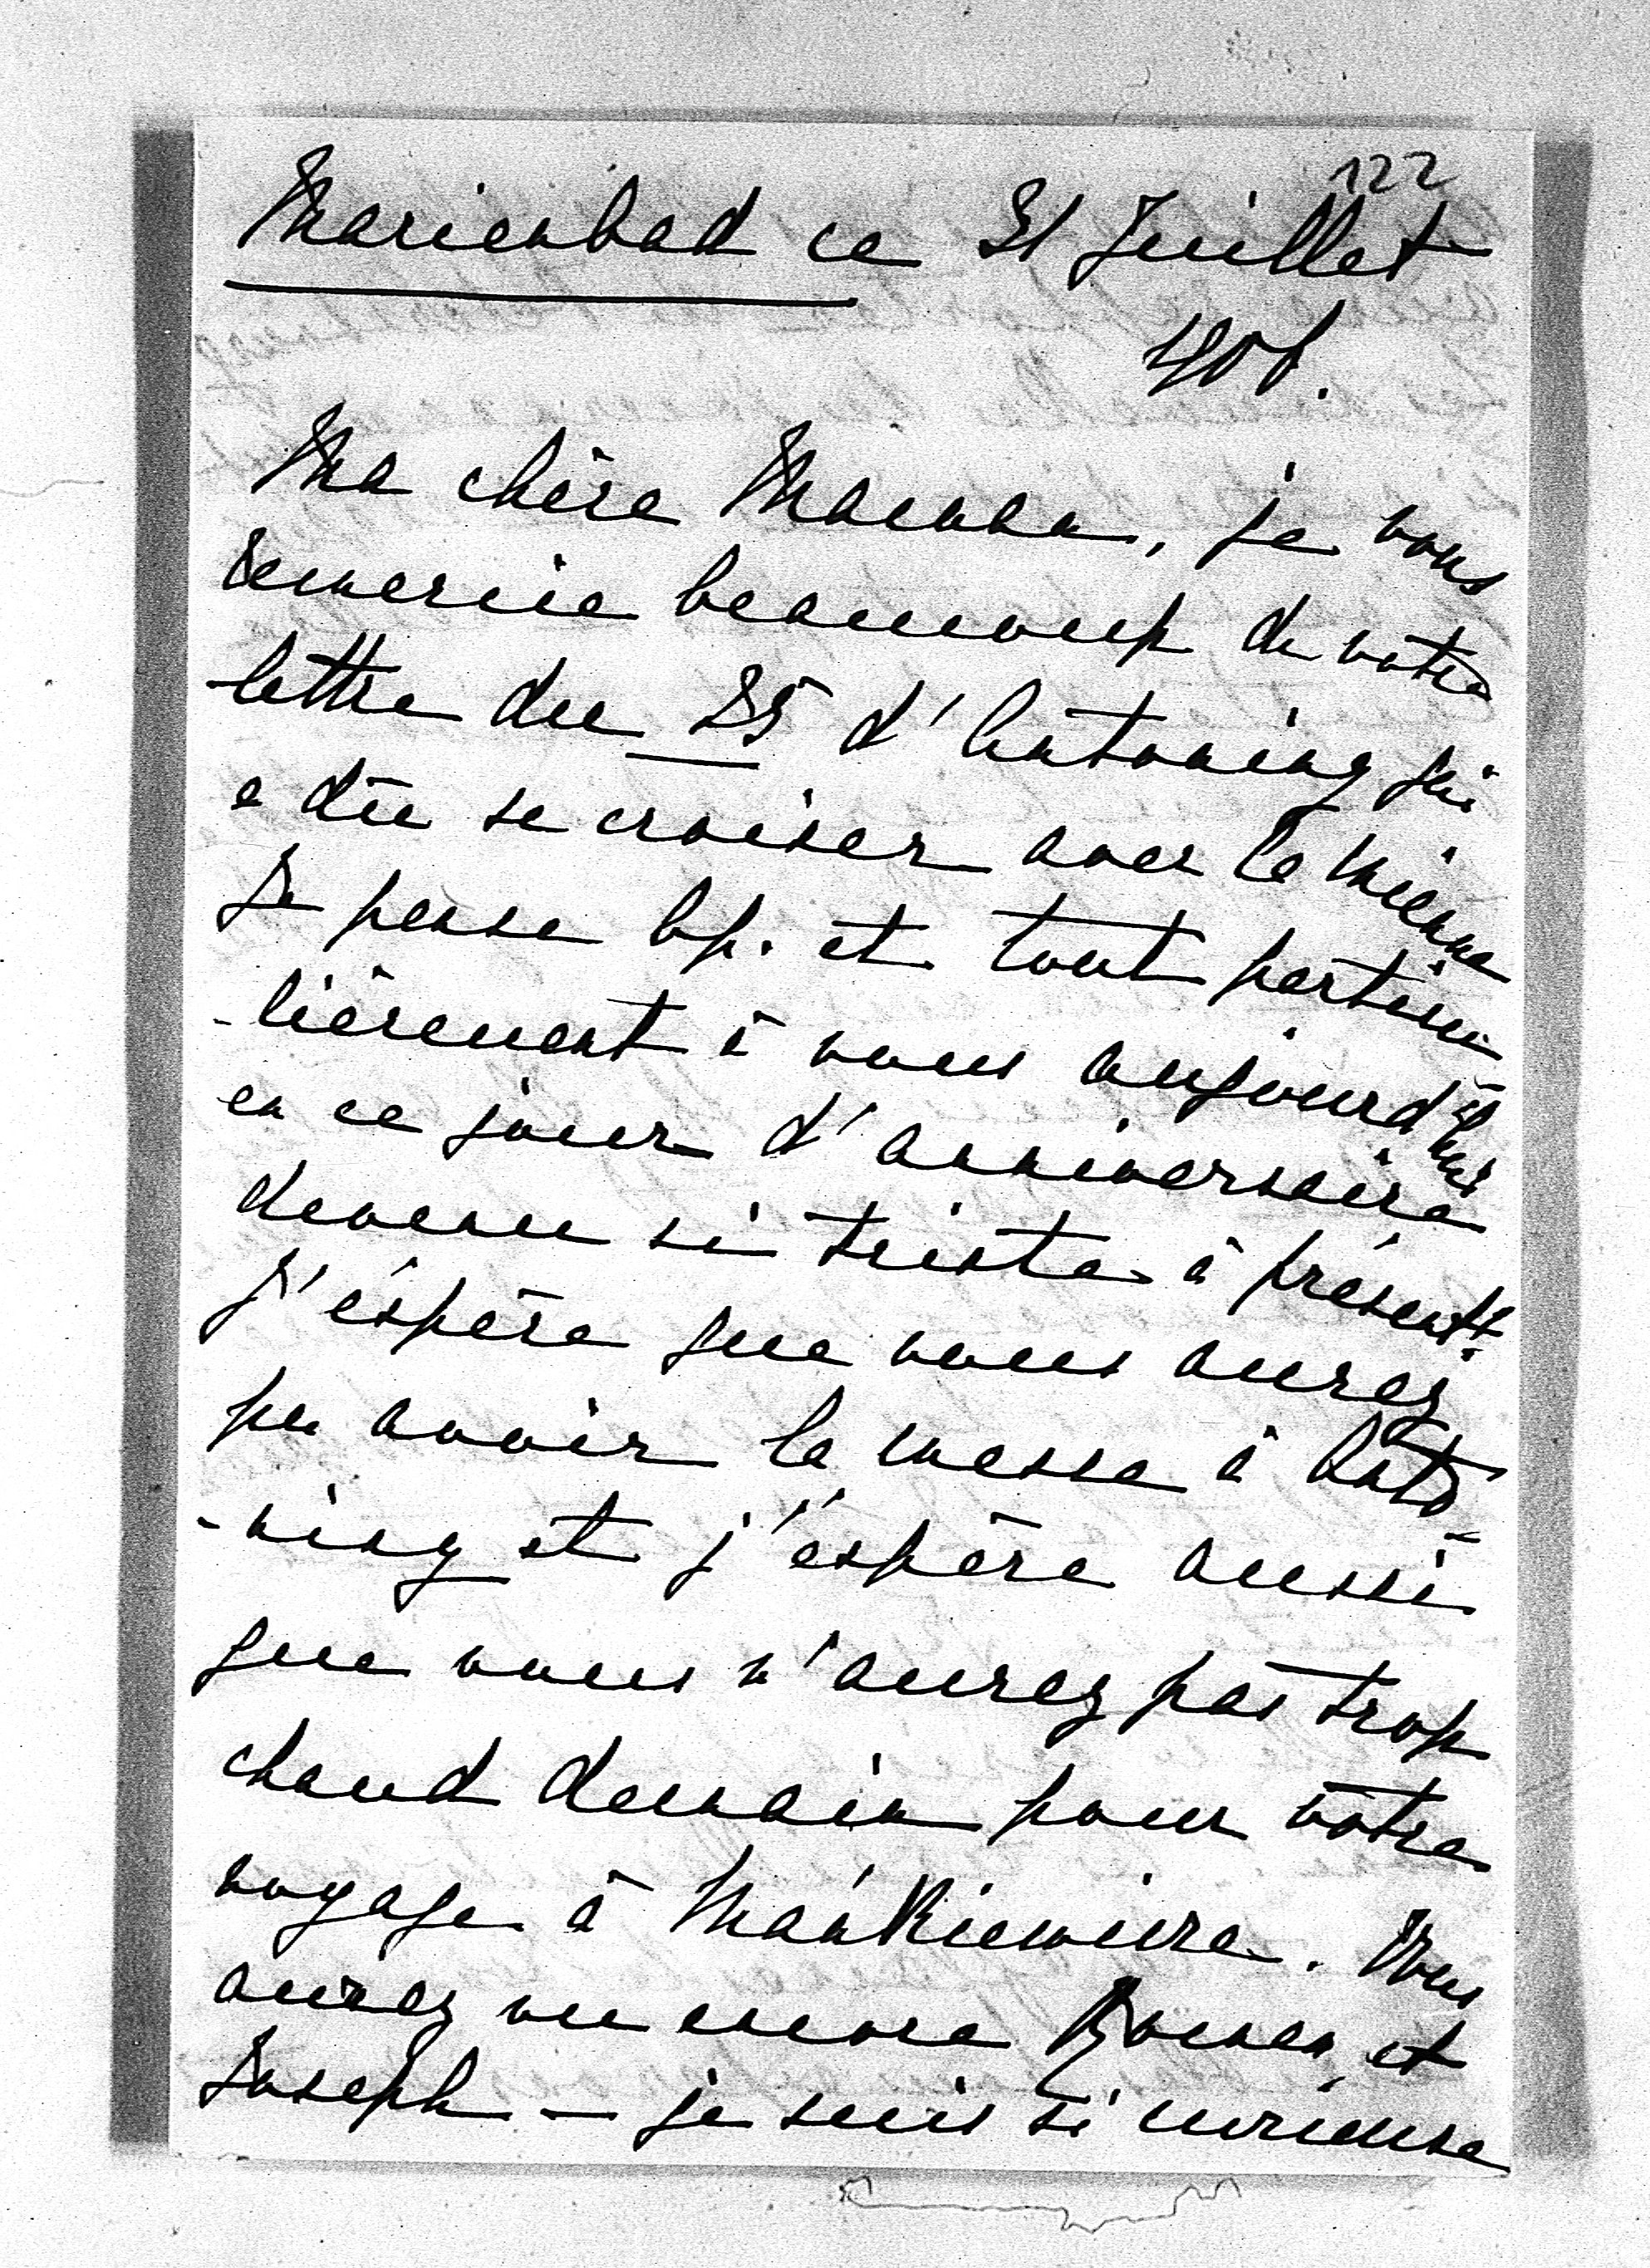 122
Marienbad ce 31 Juillet
1906.
Ma chère Maman, je vous
remercie beaucoup de votre
lettre du 25 d'Antoniny qui
a dû se croiser avec la mienne
Je pense bp. et tout particu
-lièrement à vous aujourd'hui
en ce jour d'anniversaire
devenu si triste à présent.
J'espère que vous aurez
pu avoir la messe à Anto-
-niny et j'espère aussi
que vous n'aurez pas trop
chaud demain pour votre
voyage à Mańkiewicze. Vous
aurez vu encore Roman et
Joseph – je suis si curieuse